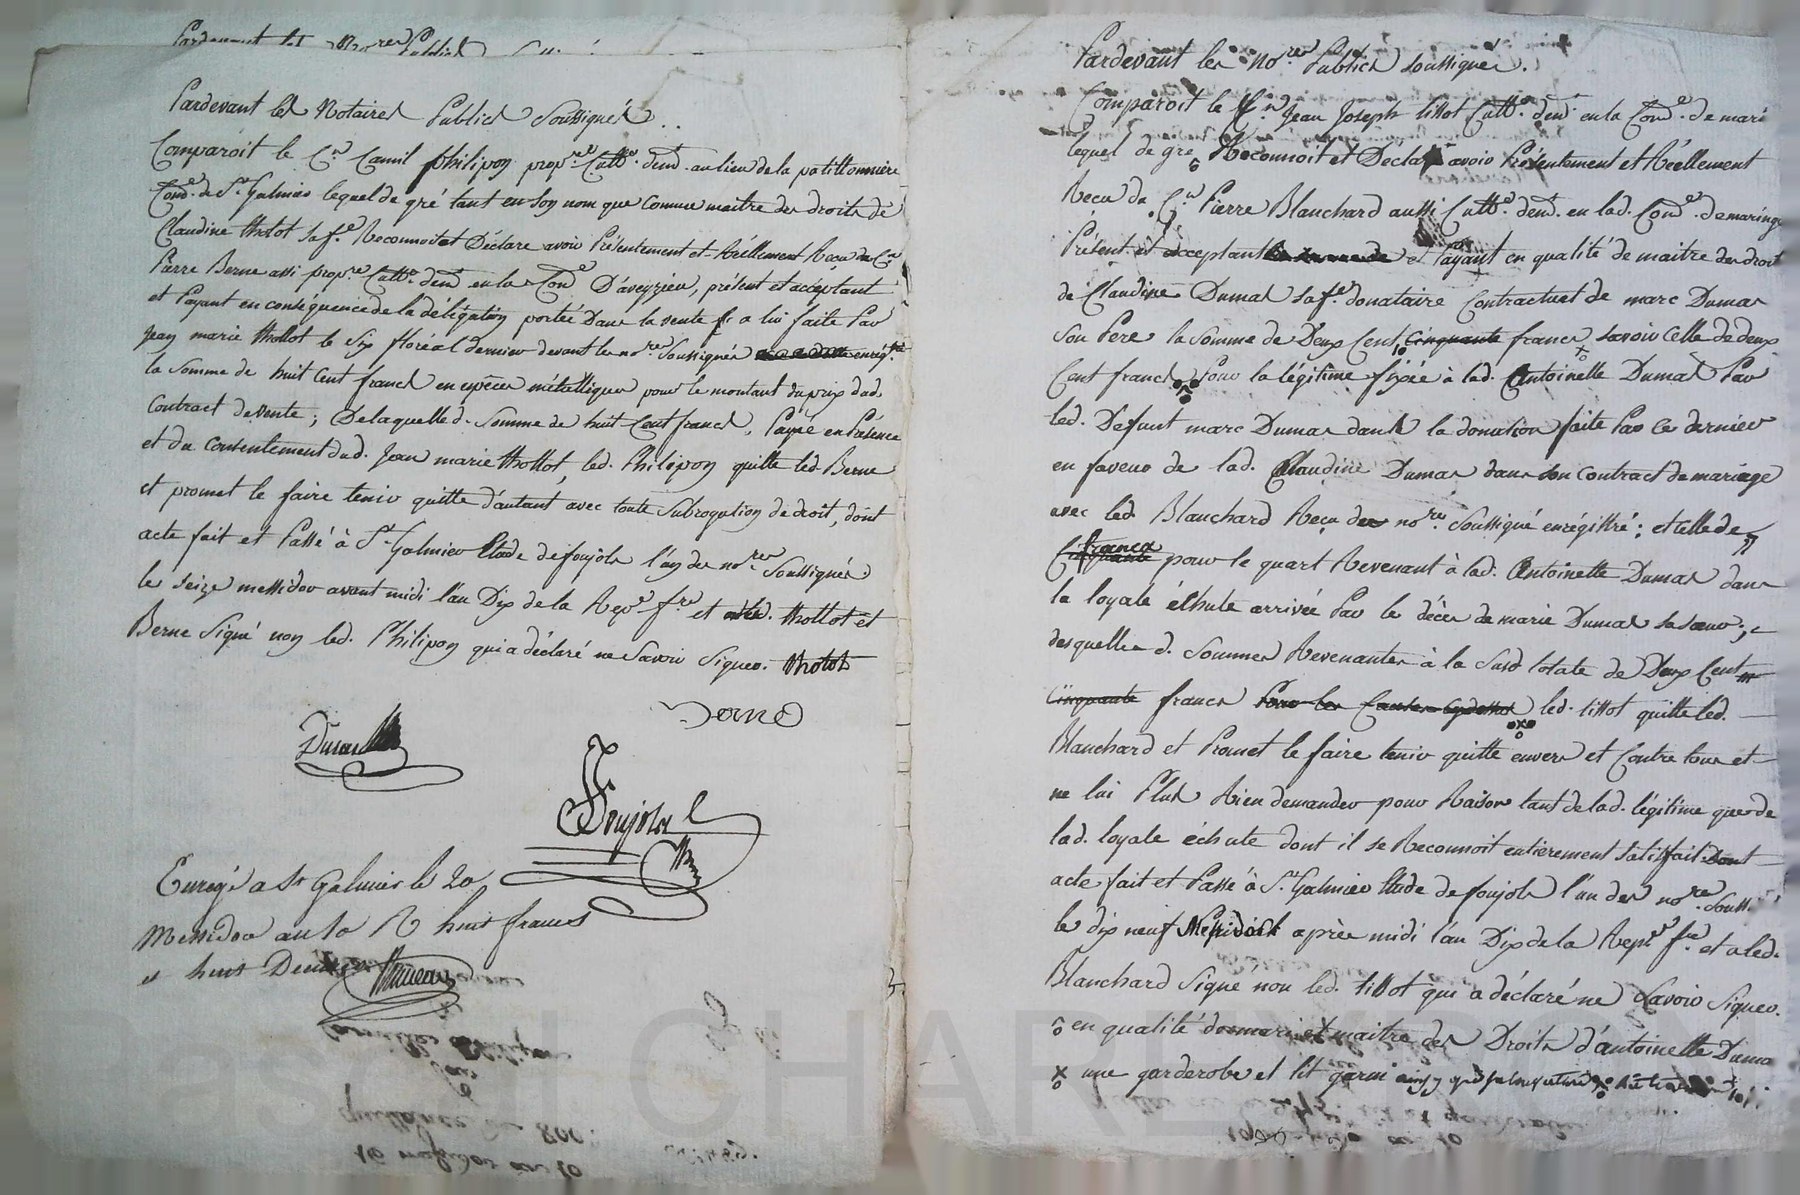 Pardevant les Notaires Publics Soussignés..
Comparoit le Cen Camil philipon propre Cultr. demt. au lieu de la patillonniere
Cone. de St. Galmier lequel de gré tant en son nom que Comme maitre des droits de
Claudine thollot sa fe. Reconnoit et Déclare avoir Présentement et Réellement Reçu du Cen
Pierre Berne assi propre. Cultr. demt. en la Cone D'aveyzieu, présent et acceptant
et Payant en conséquence de la délégation portée Dans la vente a lui faite Par
Jean marie thollot le Six floréal dernier devant les nores Soussignés enregtré
la Somme de huit Cent francs en espèces métalliques pour le montant du prix dud.
Contract de vente; De laquelle d. Somme de huit Cent francs, Payée en Présence
et du Consentement dud. Jean marie thollot, led. Philipon quitte led. Berne
et promet le faire tenir quitte d'autant avec toute Subrogation de droit, dont
acte fait et Passé à St. Galmier Etude de foujols l'un des nores Soussignés
le seize messidor avant midi l'an Dix de la Repe. fse et ont led. thollot et
Berne Signé non led. Philipon qui a déclaré ne Savoir Signer. thotot
Berne
Dumas
Foujols
Enregé a St Galmier le 20
Messidor an 10 R huit francs
et huit Decimes
quittance de 800.
16 messidor an 10
Pardevant les nores Publics soussignés.
Comparoit le Cen Jean Joseph tissot Cultr. demt en la Cone. de mari
lequel de gré Reconnoit et Declare avoir Présentement et Réellement
Reçu du Cen Pierre Blanchard aussi Cultr. demt. en lad. Cone. de maringe
Présent et acceptant et Payant en qualité de maitre des droits
de Claudine Dumas sa fe. donataire Contractuel de marc Dumas
son Pere la Somme de Deux Cent cinquante francs, savoir Celle de deux
Cent francs Pour la légitime fixée à lad. Antoinette Dumas Par
led. Defunt marc Dumas dans la donation faite Par Ce dernier
en faveur de lad. Claudine Dumas dans son Contract de mariage
avec led. Blanchard Reçu des nores. Soussigné enrégistré; et celle de
francs
Cinquante pour le quart Revenant à lad. Antoinette Dumas dans
la loyale échute arrivée Par le décès de marie Dumas sa sœur;
desquelles d. Sommes Revenantes à la Susd. totale de Deux Cent
cinquante francs led. tissot quitte led.
Blanchard et Promet le faire tenir quitte envers et Contre tous et
ne lui Plus Rien demander pour Raison tant de lad. légitime que de
lad. loyale échute dont il se Reconnoit entierement satisfait. Dont
acte fait et Passé à St. Galmier Etude de foujols l'un des nores. Souss.
le dix neuf Messidor après midi l'an Dix de la Repe fse. et a led.
Blanchard Signé non led. tissot qui a déclaré ne Savoir Signer.
en qualité de mari et maitre des Droits d'antoinette Duma
une garderobe et lit garni